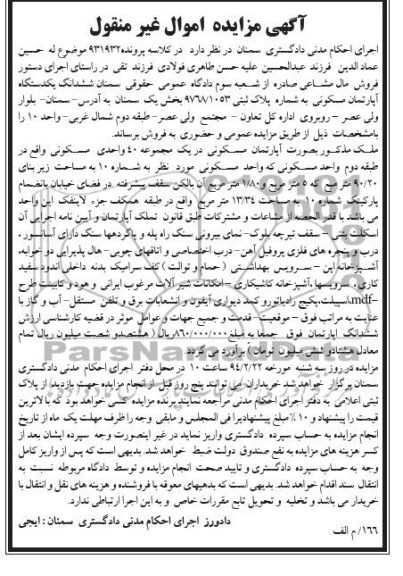 آگهی مزایده اموال غیر منقول
اجرای احکام مدنی دادگستری سمنان در نظر دارد در کلاسه پرونده ۹۳۱۹۳۲ موضوع له حسین
عماد الدین فرزند عبدالحسین علیه حسن طاهری فولادی فرزند تقی در راستای اجرای دستور
فروش مال مشاعی صادره از شعبه سوم دادگاه عمومی حقوقی سمنان ششدانگ یکدستگاه
آپارتمان مسکونی به شماره پلاک ثبتی ۹۷۶۸/۱۰۵۳ بخش یک سمنان به آدرس-سمنان- بلوار
ولی عصر - روبروی اداره کل تعاون - مجتمع ولی عصر- طبقه دوم شمال غربی- واحد ۱۰ را
بامشخصات ذیل از طریق مزایده عمومی و حضوری به فروش برساند.
ملک مذکور بصورت آپارتمان مسکونی در یک مجموعه ۴۰ واحدی مسکونی واقع در
طبقه دوم واحد مسکونی که واحد مسکونی مورد نظر به شماره ۱۰ به مساحت زیر بنای
۹۰/۲۰ متر مربع که ۵ متر مربع و ۱/۸۰ متر مربع آن بالکن سقف پیشرفته در فضای خیابان بانضمام
پارکینگ شماره ۱۰ به مساحت ۱۳/۳۴ متر مربع واقع در طبقه همکف جزء لاینفک این واحد
می باشد با قدر الحصه از مشاعات و مشترکات طبق قانون تملک آپارتمان و آیین نامه اجرایی آن
اسکلت بتنی- سقف تیرچه بلوک- نمای بیرونی سنگ راه پله و پاگردها سنگ دارای آسانسور ،
درب و پنجره های فلزی پروفیل آهن- درب اختصاصی و اتاقهای چوبی- هال پذیرایی دو خوابه،
آشپزخانه اپن - سرویس بهداشتی ( حمام و توالت ) کف سرامیک بدنه داخلی اندود سفید
کاری، سرویسها ،آشپزخانه کاشیکاری - امکانات شیر آلات مرغوب ایرانی و هود و کابینت طرح
mdf- اسپیلت،پکیج رادیاتورو کمد دیواری آیفون و انشعابات برق و تلفن مستقل- آب و گاز با
عنایت به مراتب فوق - موقعیت - قدمت و جمیع جهات و عوامل موثر در قضیه کارشناسی ارزش
ششدانگ آپارتمان فوق جمعا به مبلغ ۸۶۰/۰۰۰/۰۰۰ریال ( هشتصدو شصت میلیون ریال تمام
معادل هشتادو شش میلیون تومان ) برآورد می گردد.
مزایده در روز سه شنبه مورخه ۹۴/۲/۲۲ ساعت ۱۰ در محل دفتر اجرای احکام مدنی دادگستری
سمنان برگزار خواهد شد خریداران می توانند پنج روز قبل از انجام مزایده جهت بازدید از پلاک
ثبتی اعلامی به دفتر اجرای احکام مدنی مراجعه نمایند برنده مزایده کسی خواهد بود که بالاترین
قیمت را پیشنهاد و ۱۰٪ مبلغ پیشنهادیرا فی المجلس و مابقی وجه را ظرف مهلت یک ماه از تاریخ
انجام مزایده به حساب سپرده دادگستری واریز نماید در غیر اینصورت وجه سپرده ایشان بعد از
کسر هزینه های مزایده به نفع صندوق دولت ضبط خواهد شد. بدیهی است که پس از واریز کامل
وجه به حساب سپرده دادگستری و تایید صحت انجام مزایده و توسط دادگاه مربوطه نسبت به
انتقال سند اقدام خواهد شد. بدیهی است که بدهیهای معوقه با فروشنده و هزینه های نقل و انتقال با
خریدار می باشد و تخلیه و تحویل تابع مقررات خاص و به این اجرا ارتباطی ندارد.
دادورز اجرای احکام مدنی دادگستری سمنان : ایجی
۱۶۶/ م الف
ParsNamadData